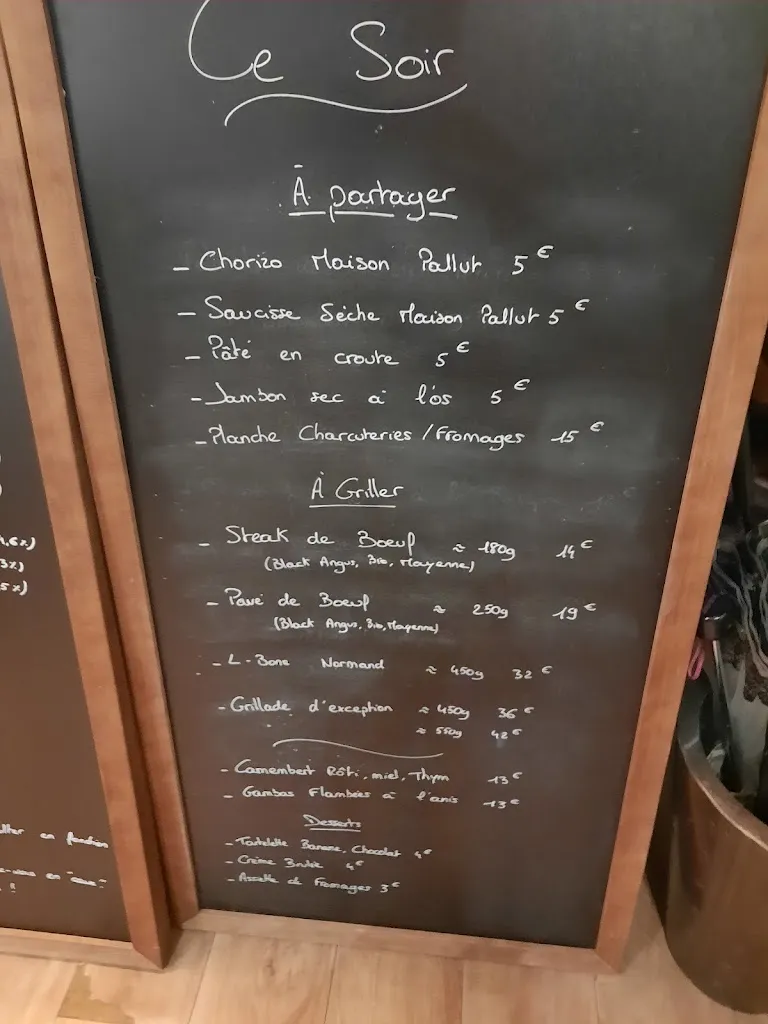 Ce Soir
À partager
- Chorizo Maison Pallut 5€
- Saucisse Sèche Maison Pallut 5€
- Pâté en croute 5€
- Jambon sec à l'os 5€
- Planche Charcuteries / Fromages 15€
À Griller
- Steak de Boeuf ≈ 180g 14€
(Black Angus, Bio, Mayenne)
- Pavé de Boeuf ≈ 250g 19€
(Black Angus, Bio, Mayenne)
- L-Bone Normand ≈ 450g 32€
- Grillade d'exception ≈ 450g 36€
≈ 550g 42€
- Camembert Rôti, miel, Thym 13€
- Gambas Flambées à l'anis 13€
Desserts
- Tartelette Banane, Chocolat 4€
- Crème Brulée 4€
- Assiette de Fromages 3€
3%)
5%)
en fonction
en "cave"
!